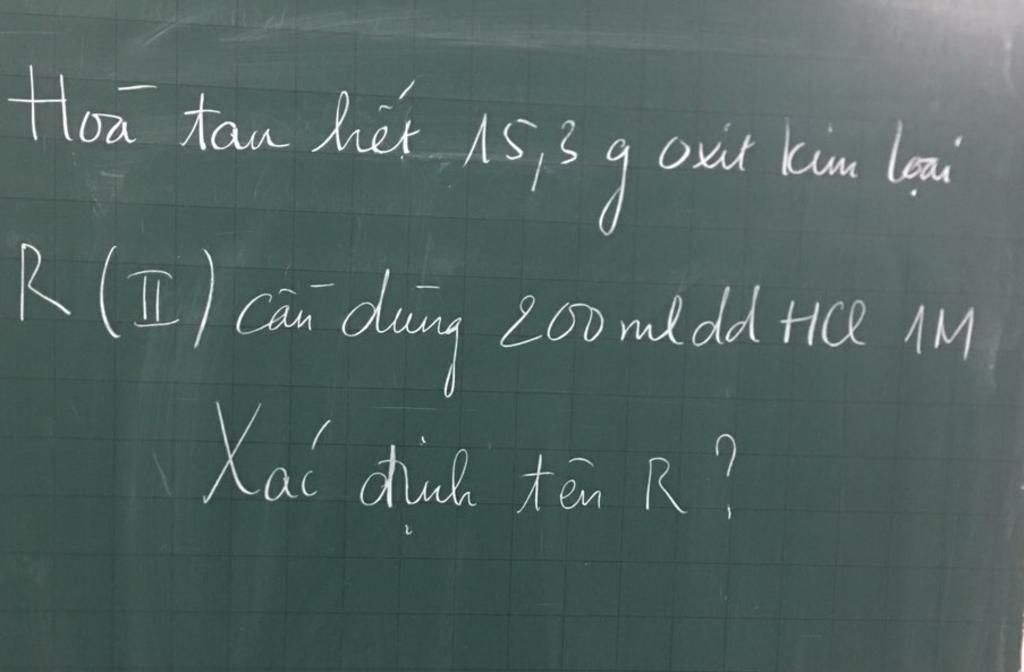 Hoà tan hết 15,3 g oxit kim loại
R (II) cần dùng 200 ml dd HCl 1M
Xác định tên R ?